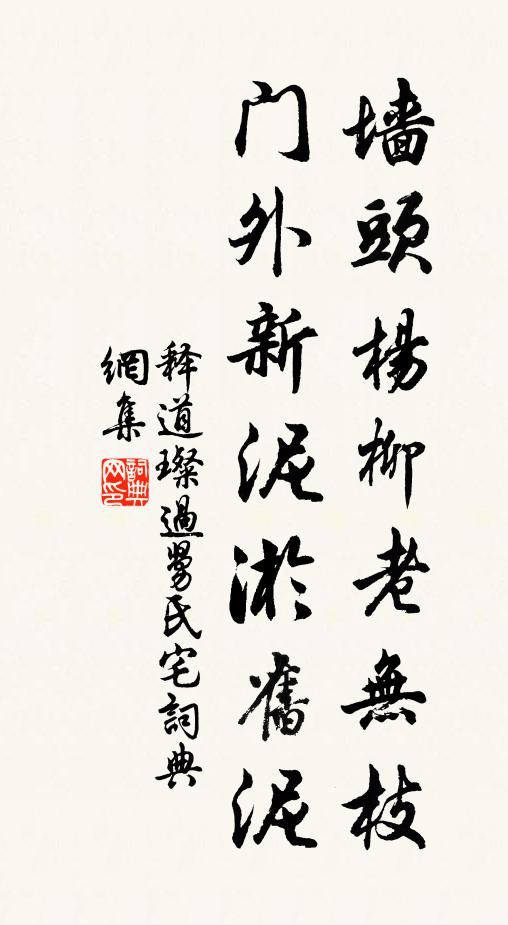 墙頭楊柳老無枝
门外新泥淤舊泥
释道璨過舅氏宅詞典
網集
詞典网印